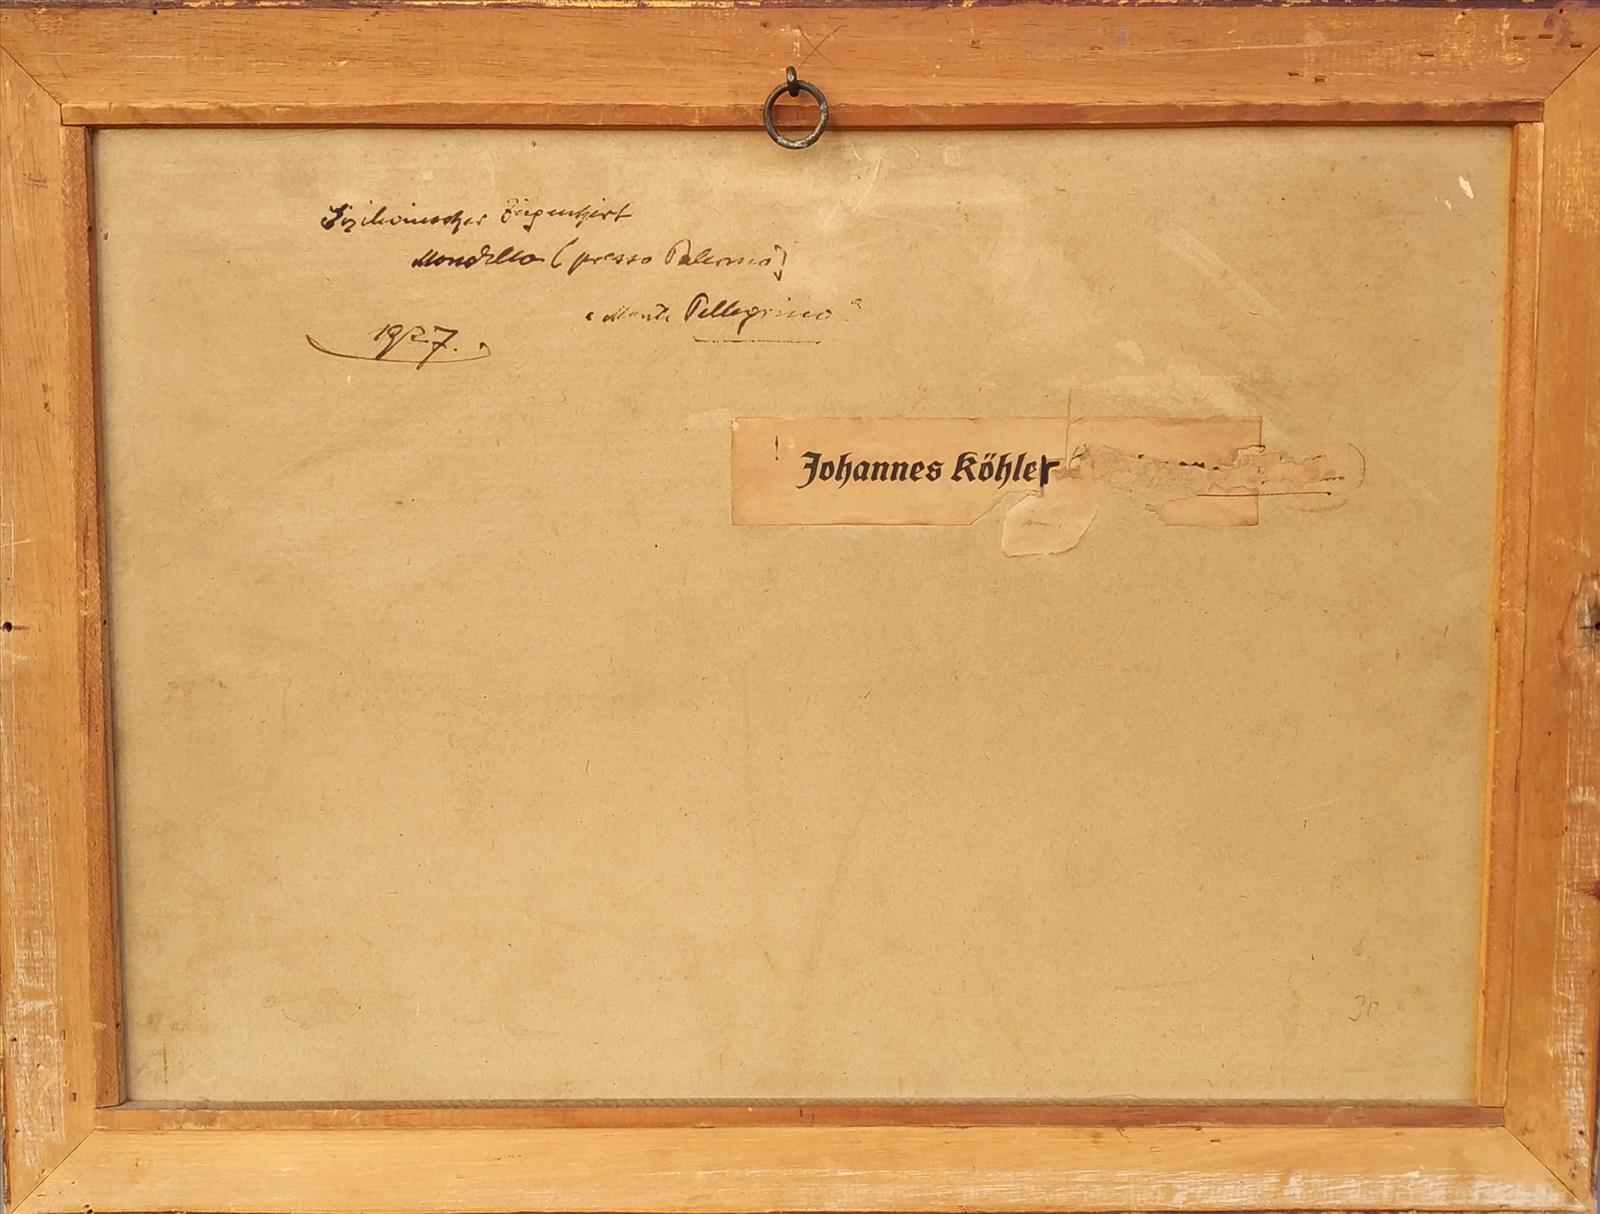 Sizilianischer Ziegenhirt
Mondello (presso Palermo)
"Monte Pellegrino"
1927.
! Johannes Köhler
30